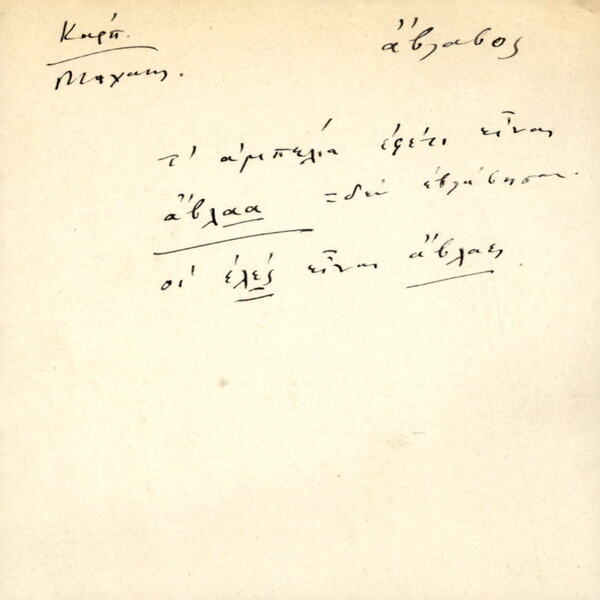 Καρπ.
ἄβλαβος
Μιχαηλ.
τ' ἀμπελια ἐφέτι εἶναι
ἄβλαα = δεν ἐβλάβησαν.
οἱ ἐλές εἶναι ἄβλαες.